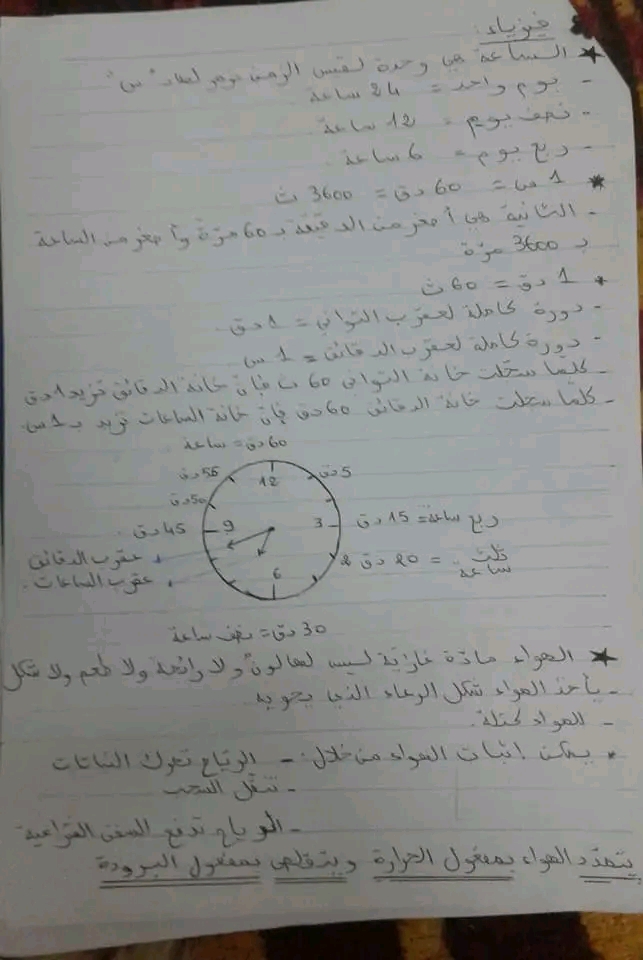 فيزياء:
★ الساعة هي وحدة لقيس الزمن نرمز لها بـ "س"
- يوم واحد = 24 ساعة
- نصف يوم = 12 ساعة
- ربع يوم = 6 ساعة
* 1 س = 60 دق = 3600 ث
- الثانية هي أصغر من الدقيقة بـ 60 مرّة وأصغر من الساعة
بـ 3600 مرّة
* 1 دق = 60 ث
- دورة كاملة لعقرب الثواني = 1 دق.
- دورة كاملة لعقرب الدقائق = 1 س
- كلّما سجّلت خانة الثواني 60 ث فإنّ خانة الدقائق تزيد 1 دق
- كلّما سجلت خانة الدقائق 60 دق فإن خانة الساعات تزيد بـ 1 س.
60 دق = ساعة
55 دق 12 5 دق
50 دق
45 دق 9 3 15 دق = ربع ساعة
عقرب الدقائق
20 دق = ثلث ساعة
عقرب الساعات 6
30 دق = نصف ساعة
★ الهواء مادّة غازيّة ليس لها لون ولا رائحة ولا طعم ولا شكل
- يأخذ الهواء شكل الوعاء الذي يحويه
- الهواء كتلة.
* يمكن إثبات الهواء من خلال: - الرياح تحرك النباتات
- تنقّل السحب
- الرياح تدفع السفن الشراعية
يتمدّد الهواء بمفعول الحرارة ويتقلص بمفعول البرودة